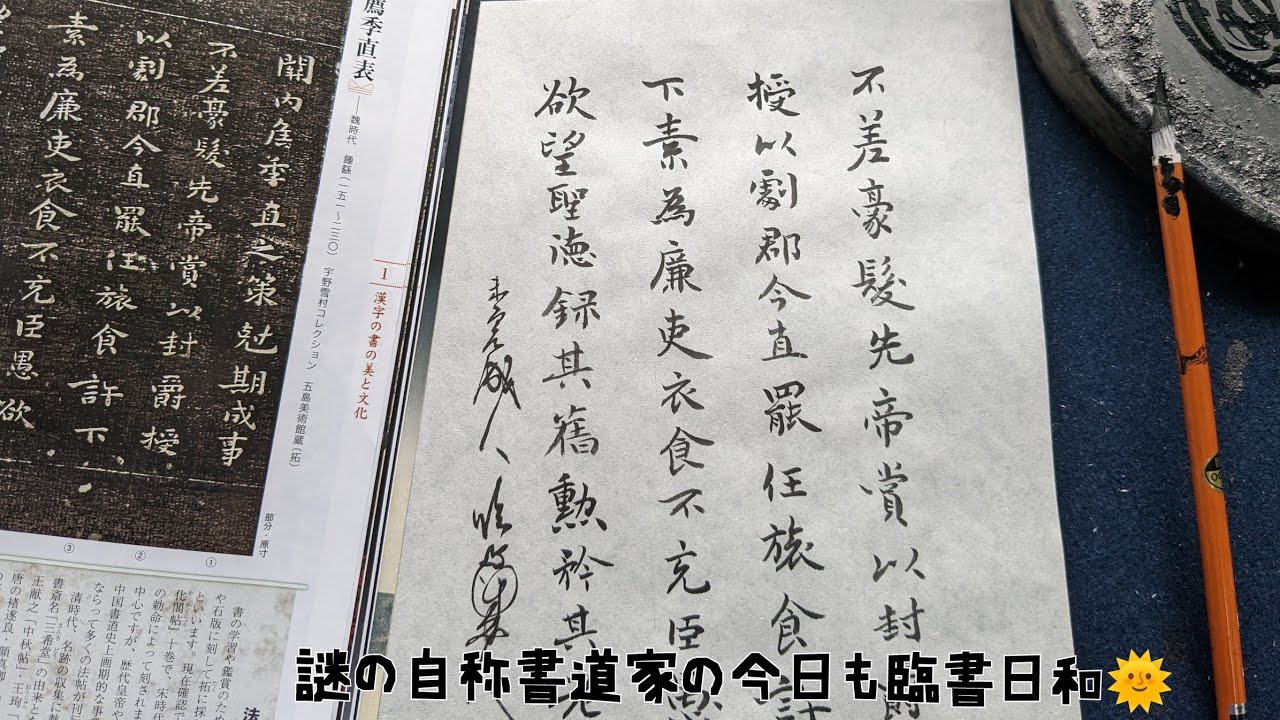 不差豪髮先帝賞以封爵
授以劇郡今直罷任旅食許
下素為廉吏衣食不充臣愚
欲望聖徳録其舊勲矜其老
薦季直表
——魏時代 鍾繇(一五一〜二三〇) 宇野雪村コレクション 五島美術館蔵(拓)
1 漢字の書の美と文化
関内侯季直之策尅期成事
不差豪髮先帝賞以封爵授
以劇郡今直罷任旅食許下
素為廉吏衣食不充臣愚欲
部分・原寸
①
②
③
法
書の学習や鑑賞のた
や石版に刻して、拓に採
といいます。現在確認で
化閣帖」
の勅命によって刻されま
中心ですが、歴代皇帝や
中国書道史上画期的な事
ならって多くの法帖が刊行
清時代、名跡の収集に熱
書斎名「三希堂」の由来と
王献之「中秋帖」・王珣「
唐の褚遂良・顔真卿
謎の自称書道家の今日も臨書日和🌞